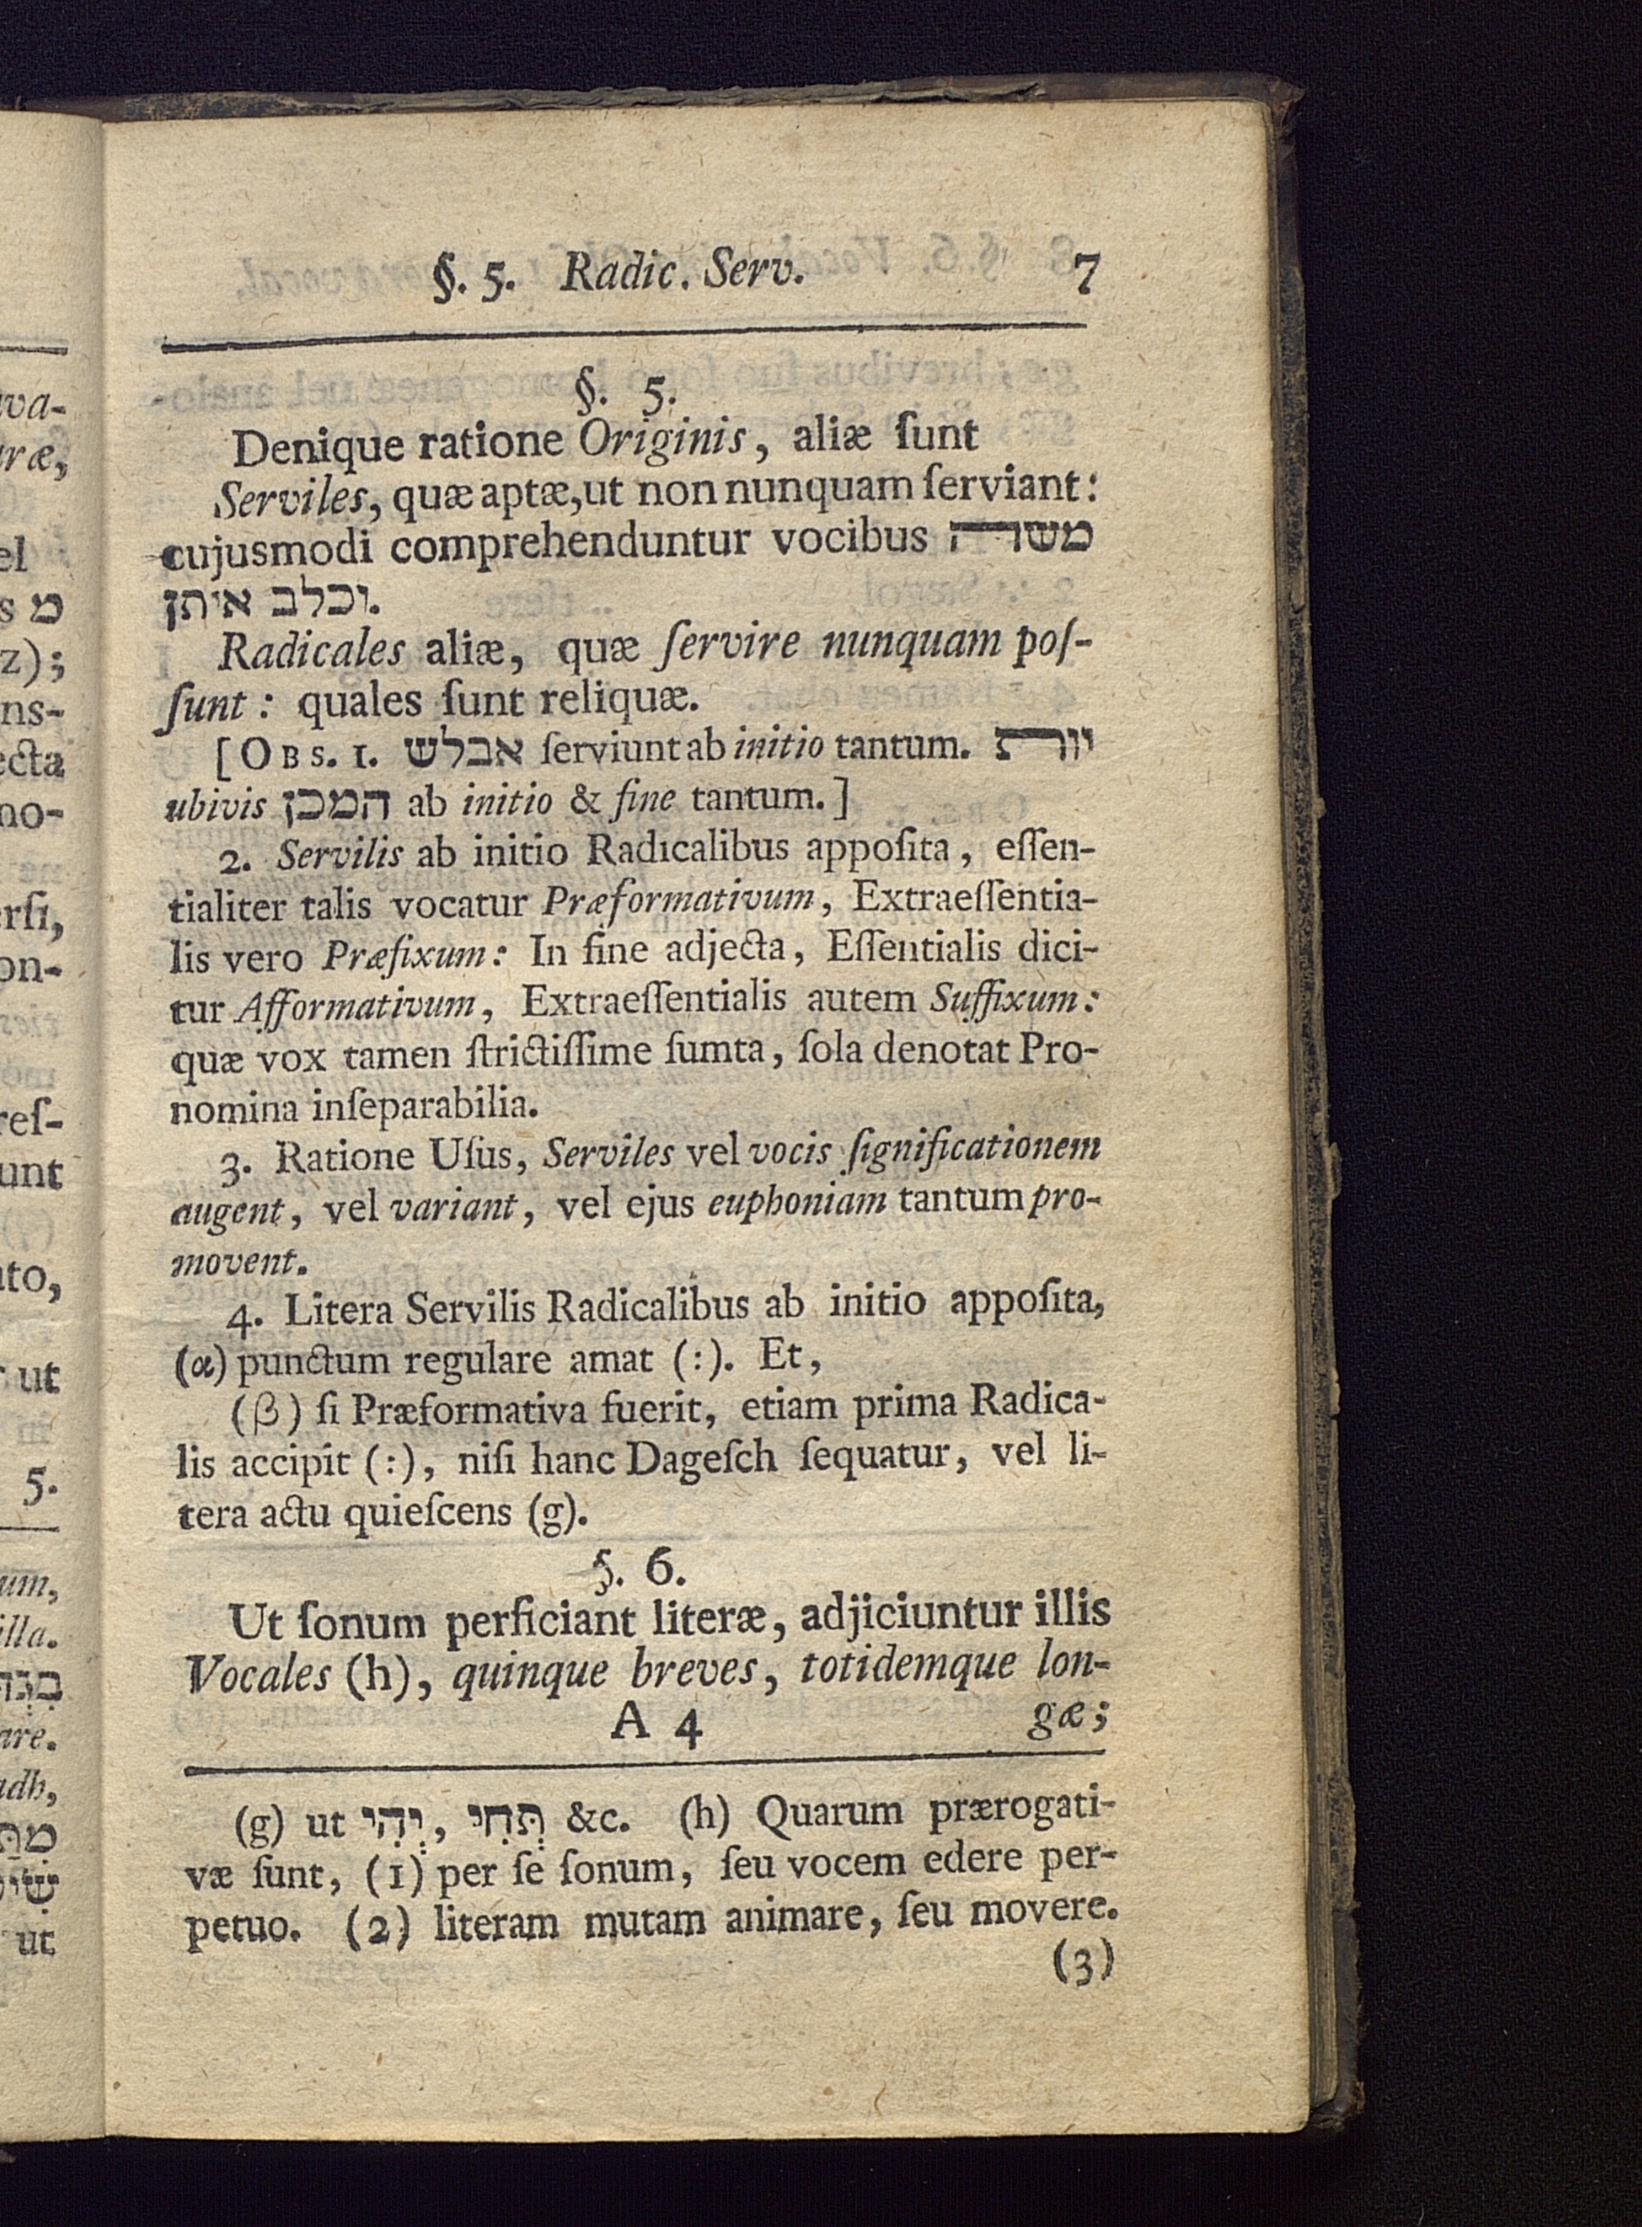 §. 5. Radic. Serv. 7
§. 5.
Denique ratione Originis, aliæ ſunt
Serviles, quæ aptæ, ut non nunquam ſerviant:
cujusmodi comprehenduntur vocibus משה
וכלב איתן.
Radicales aliæ, quæ ſervire nunquam poſ-
ſunt: quales ſunt reliquæ.
[OBS. 1. אבלש ſerviunt ab initio tantum. יות
ubivis המכן ab initio & fine tantum.]
2. Servilis ab initio Radicalibus appoſita, eſſen-
tialiter talis vocatur Præformativum, Extraeſſentia-
lis vero Præfixum: In fine adjecta, Eſſentialis dici-
tur Afformativum, Extraeſſentialis autem Suffixum:
quæ vox tamen ſtrictiſſime ſumta, ſola denotat Pro-
nomina inſeparabilia.
3. Ratione Uſus, Serviles vel vocis ſignificationem
augent, vel variant, vel ejus euphoniam tantum pro-
movent.
4. Litera Servilis Radicalibus ab initio appoſita,
(α) punctum regulare amat (:). Et,
(β) ſi Præformativa fuerit, etiam prima Radica-
lis accipit (:), niſi hanc Dageſch ſequatur, vel li-
tera actu quieſcens (g).
§. 6.
Ut ſonum perficiant literæ, adjiciuntur illis
Vocales (h), quinque breves, totidemque lon-
A 4 gæ;
(g) ut יְהִי, תְּחִי &c. (h) Quarum prærogati-
væ ſunt, (1) per ſe ſonum, ſeu vocem edere per-
petuo. (2) literam mutam animare, ſeu movere.
(3)